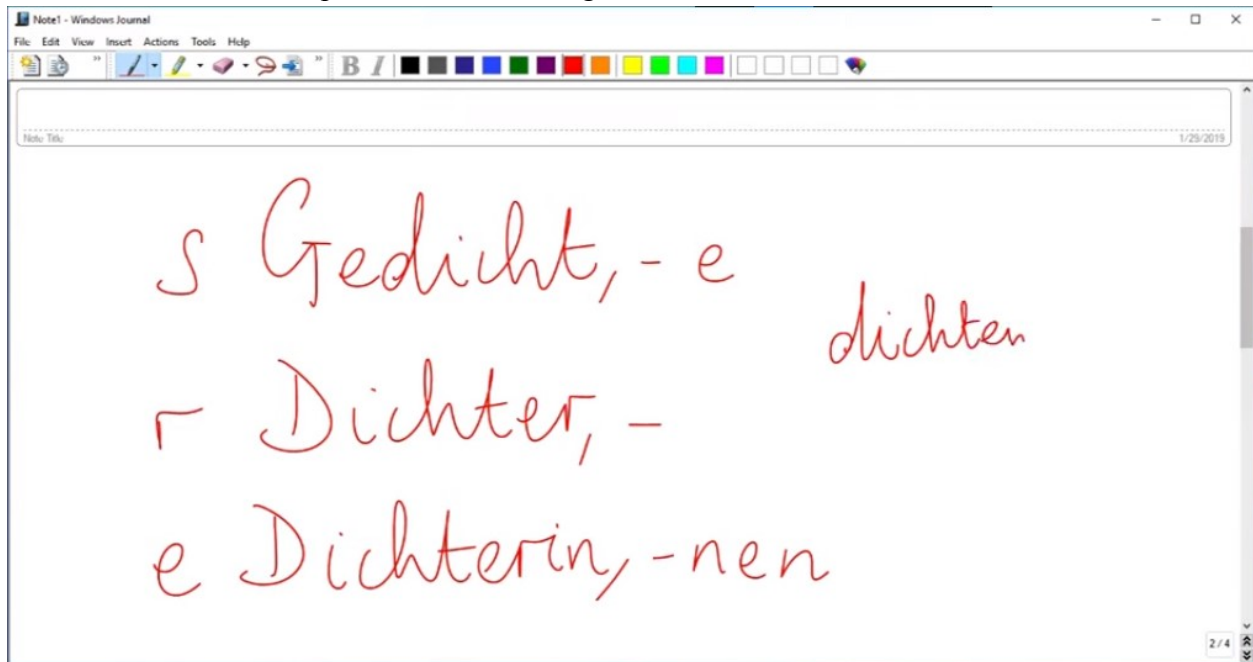 Note1 - Windows Journal
File Edit View Insert Actions Tools Help
B I
Note Title 1/29/2019
s Gedicht, - e
dichten
r Dichter, -
e Dichterin, -nen
2/4